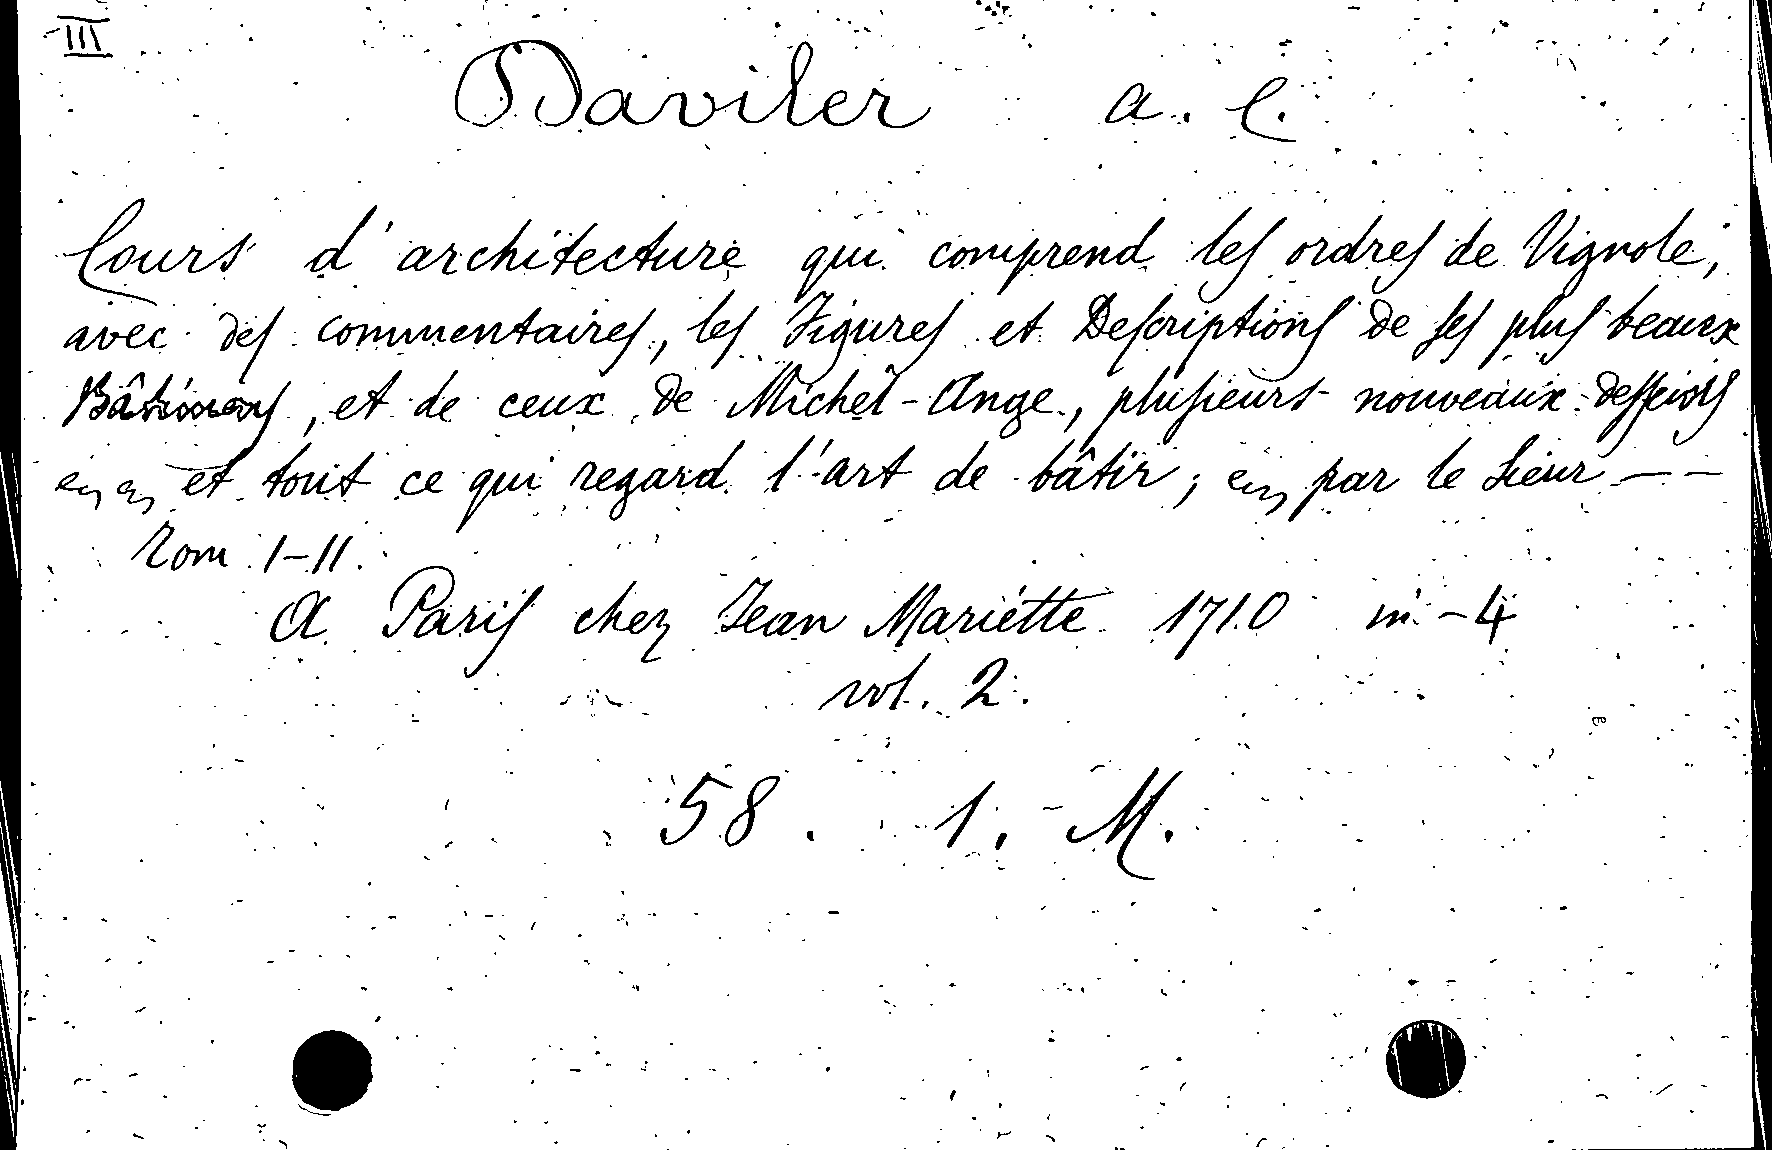 III
Daviler A. C.
Cours d'architecture qui comprend les ordres de Vignole,
avec des commentaires, les Figures et Descriptions de ses plus beaux
Bâtimens, et de ceux de Michel-Ange, plusieurs nouveaux desseins
et tout ce qui regard l'art de bâtir; par le Sieur – –
Tom I-II.
A Paris chez Jean Mariette 1710 in-4
vol. 2.
58. 1. M.